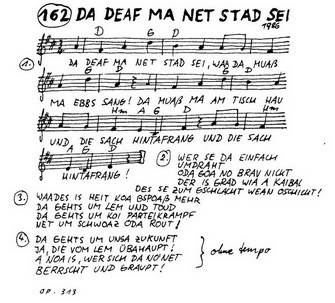 162 DA DEAF MA NET STAD SEI
1986
D G D
1. DA DEAF MA NET STAD SEI, WAS DA MUAß
G D G D
MA EBBS SANG! DA MUAß MA AM TISCH HAU
Hm A G D Hm
UND, DIE SACH HINTAFRANG UND DIE SACH
A G D
HINTAFRANG!
2. WER SE DA EINFACH
UMDRAHT
ODA GOA NO BRAV NICKT
DER IS GRAD WIA A KAIBAL
DES SE ZUM GSCHLACHT WEAN OSCHICKT!
3. WAADES IS HEIT KOA BSPOAß MEHR
DA GEHTS UM LEM UND TOUD
DA GEHTS UM KOI PARTEIKRAMPF
NET UM SCHWOAZ ODA ROUT!
4. DA GEHTS UM UNSA ZUKUNFT
JA, DIE VOM LEM ÜBAHAUPT!
A NOA IS, WER SICH DA NO NET
BERRSCHT UND GRAUPT!
ohne tempo
OP. 313